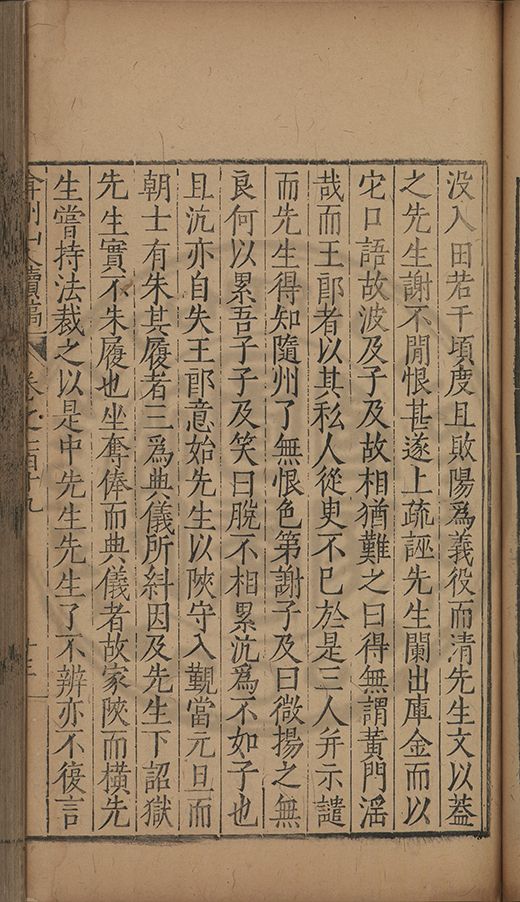 没入田若干頃度且敗陽爲義役而清先生文以葢
之先生謝不閒恨甚遂上疏誣先生闌出庫金而以
它口語故波及子及故相猶難之曰得無謂黃門滛
哉而王郎者以其私人從㬰不已於是三人并示譴
而先生得知隨州了無恨色第謝子及曰微揚之無
良何以累吾子子及笑曰脫不相累沆爲不如子也
且沆亦自失王郎意始先生以陜守入覲當元旦而
朝士有朱其履者三爲典儀所糾因及先生下詔獄
先生實不朱履也坐奪俸而典儀者故家陜而橫先
生嘗持法裁之以是中先生先生了不辨亦不復言
弇州山人續稿 卷之一百十九
十三